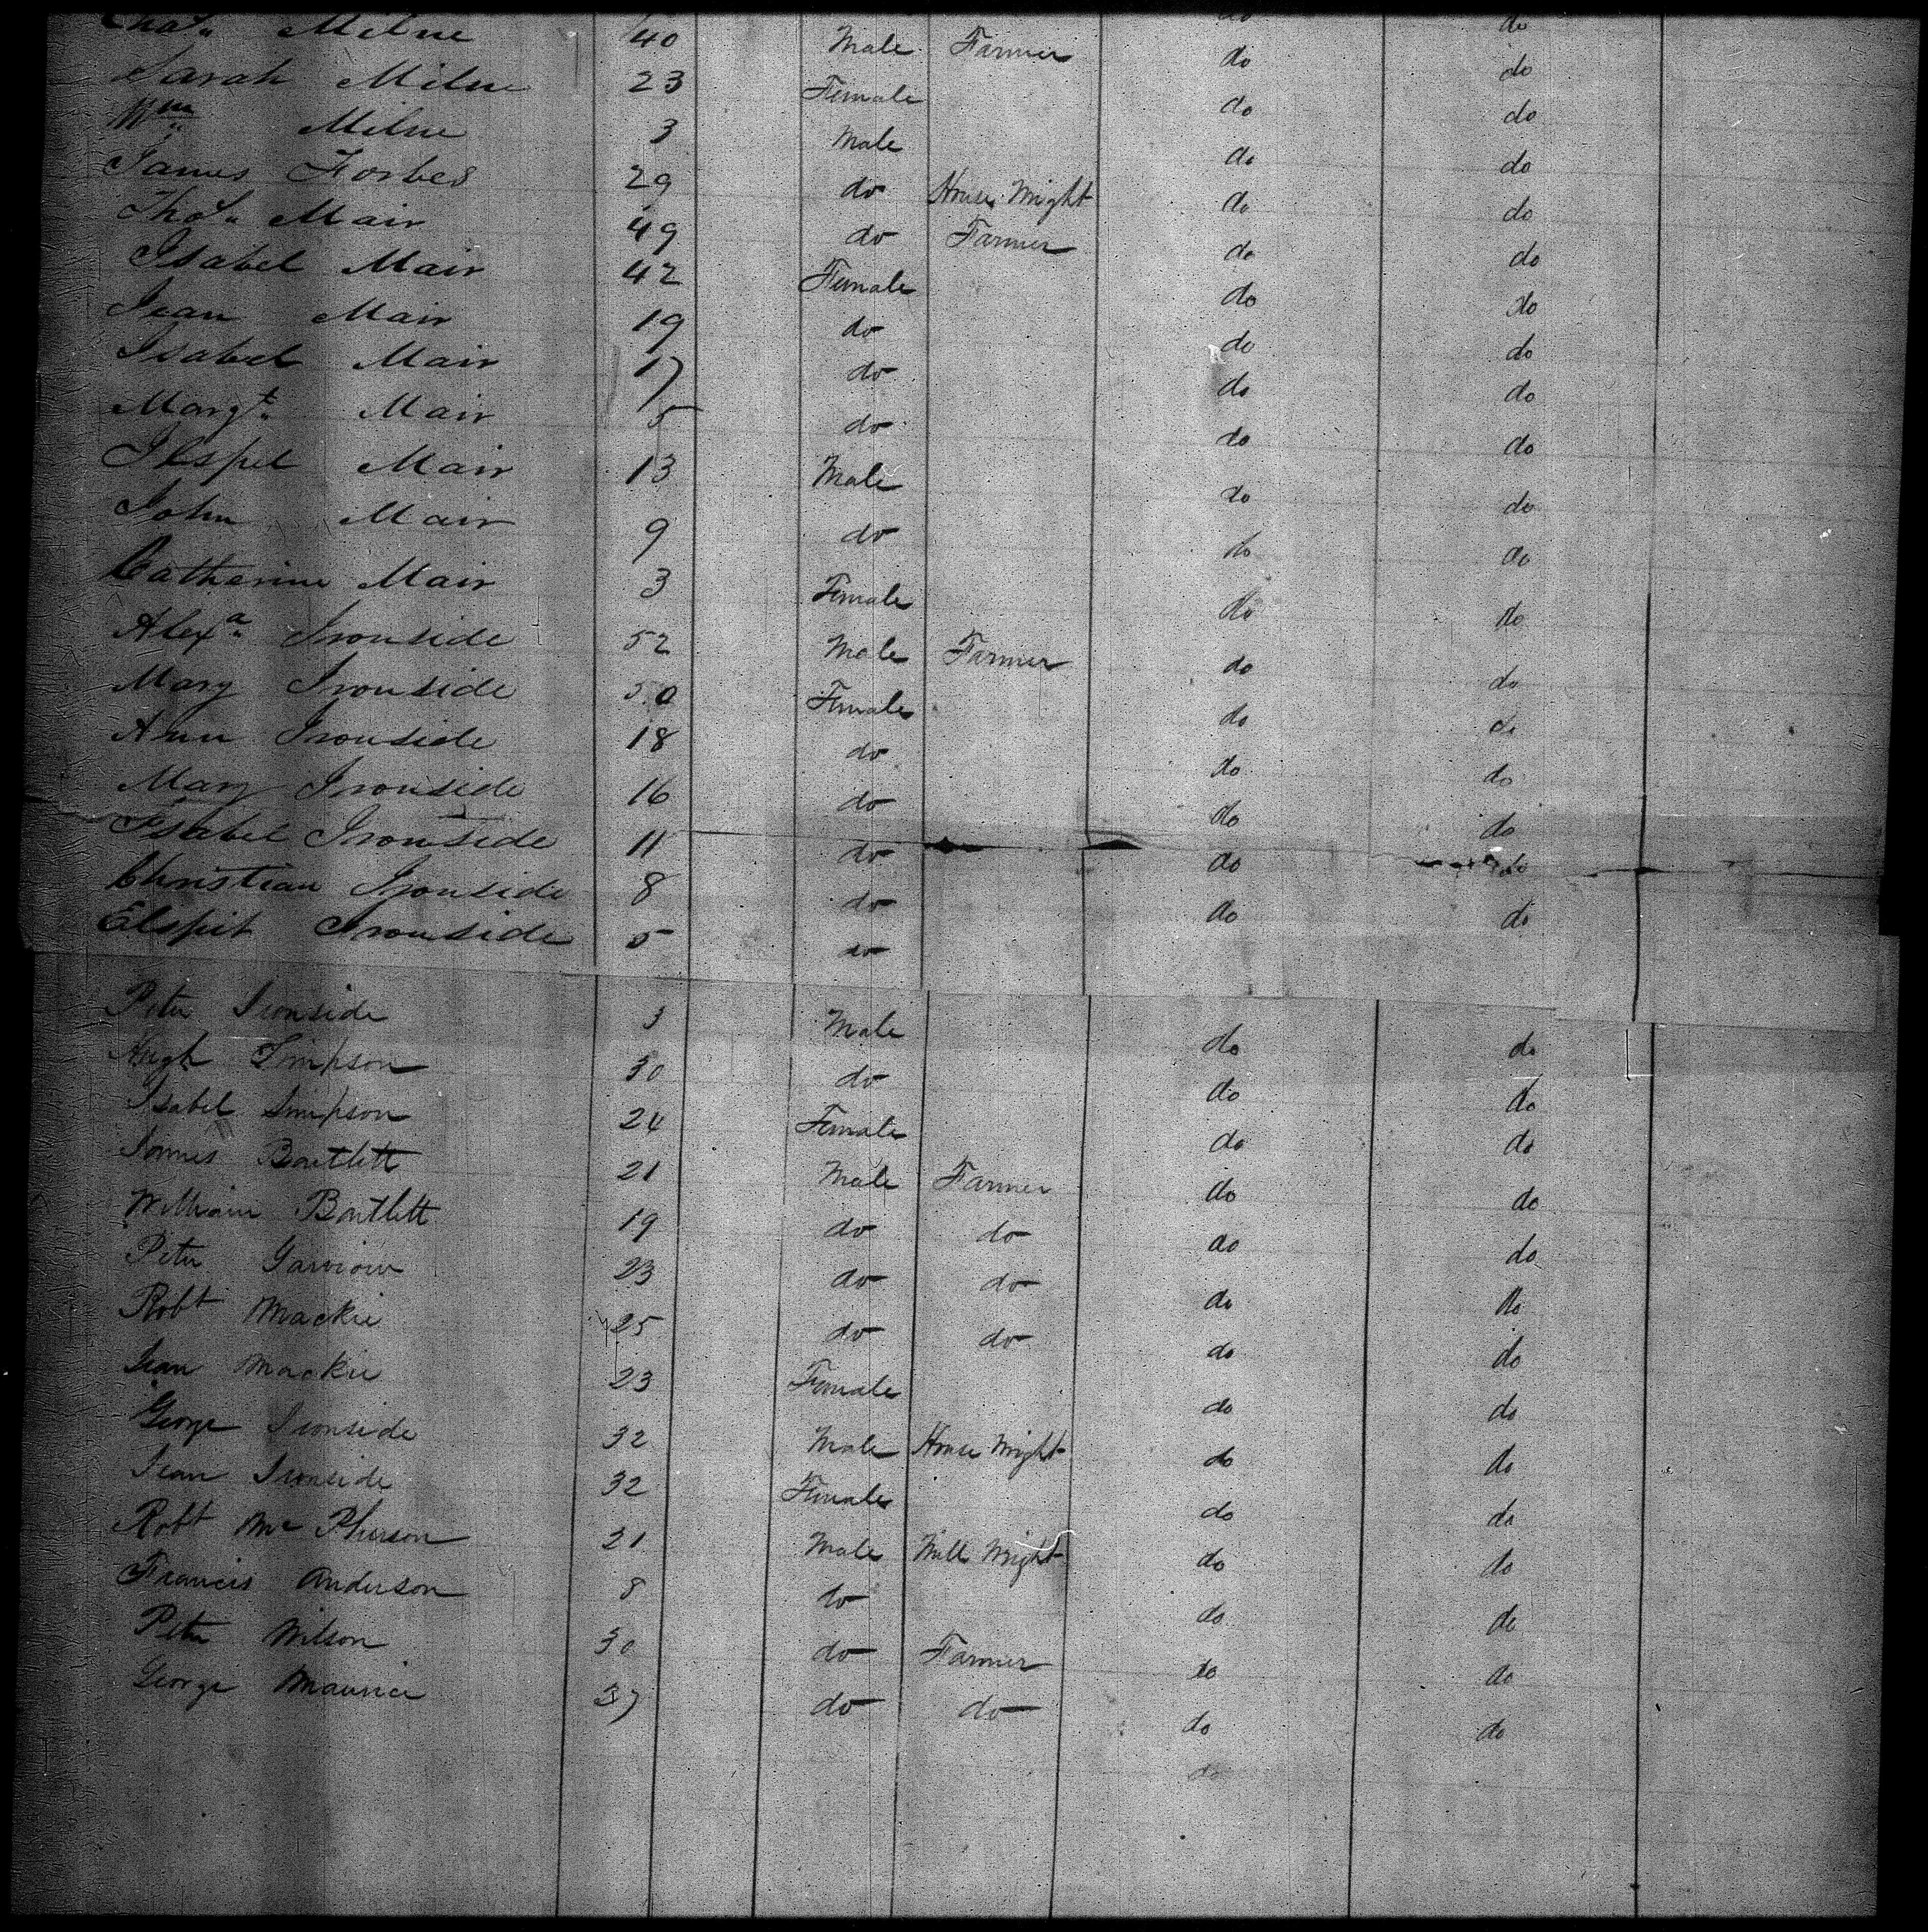 Chas. Milne 40 Male Farmer do do
Sarah Milne 23 Female do do
Wm. Milne 3 Male do do
James Forbes 29 do House Wright do do
Thos. Mair 49 do Farmer do do
Isabel Mair 42 Female do do
Jean Mair 19 do do do
Isabel Mair 17 do do do
Margt. Mair 5 do do do
Mair 13 Male do do
John Mair 9 do do do
Catherine Mair 3 Female do do
Alexa. Ironside 52 Male Farmer do do
Mary Ironside 50 Female do do
Ann Ironside 18 do do do
Mary Ironside 16 do do do
Isabel Ironside 11 do do do
Christian Ironside 8 do do do
Elspit Ironside 5 do do do
Peter Ironside 3 Male do do
Hugh Simpson 30 do do do
Isabel Simpson 24 Female do do
James Bartlett 21 Male Farmer do do
William Bartlett 19 do do do do
Peter 23 do do do do
Robt Mackie 25 do do do do
Jean Mackie 23 Female do do
George Ironside 32 Male House Wright do do
Jean Ironside 32 Female do do
Robt Mc Pherson 21 Male Mill Wright do do
Francis Anderson 8 do do do
Peter Wilson 30 do Farmer do do
George Maurice 37 do do do do
do